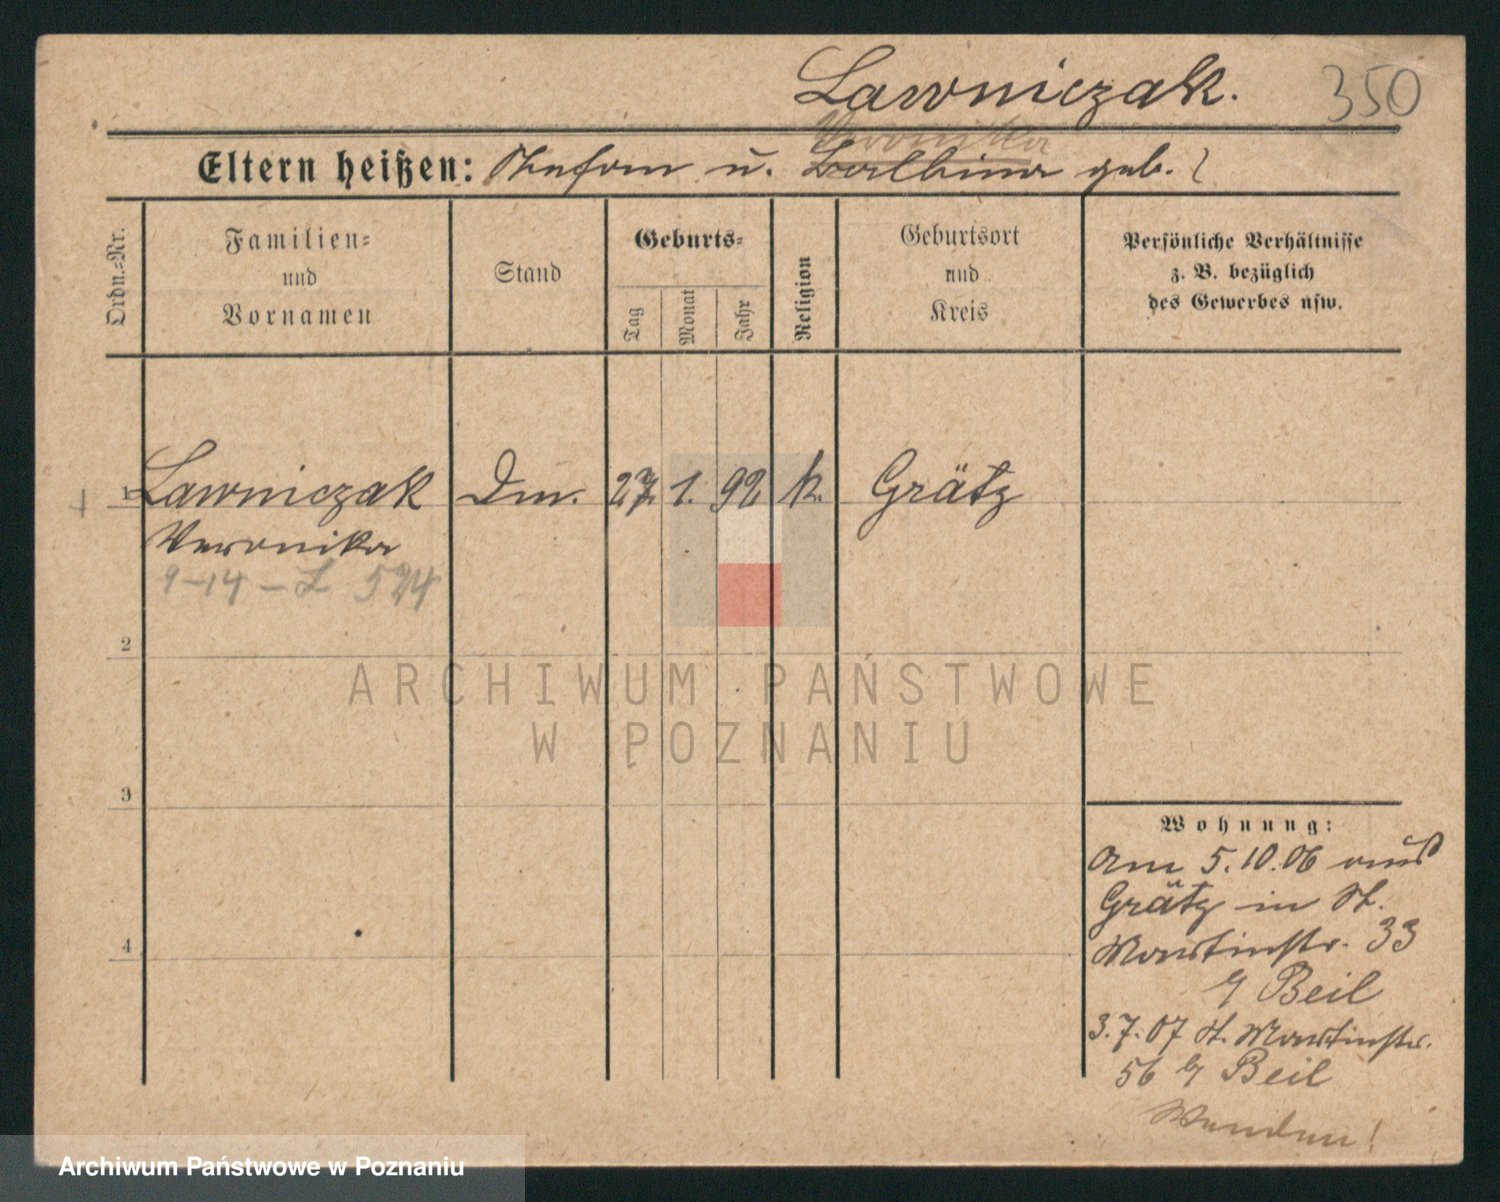 Lawniczak.
350
Veronika
Eltern heißen: Stefan u. Balbina geb. ?
Ordn.-Nr.
Familien-
und
Vornamen
Stand
Geburts-
Tag
Monat
Jahr
Religion
Geburtsort
und
Kreis
Persönliche Verhältnisse
z. B. bezüglich
des Gewerbes usw.
1 Lawniczak Dm. 27. 1. 92 k. Grätz
Veronika
9-14-L 574
2
ARCHIWUM PAŃSTWOWE
W POZNANIU
3
4
Wohnung:
Am 5.10.06 aus
Grätz in St.
Martinstr. 33
b/ Beil
3.7.07 St. Martinstr.
56 b/ Beil
Wenden!
Archiwum Państwowe w Poznaniu